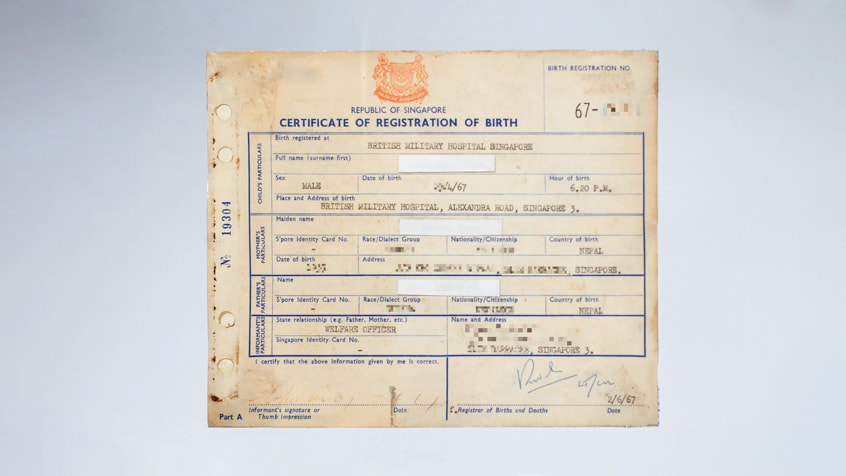 BIRTH REGISTRATION NO.
67-
REPUBLIC OF SINGAPORE
CERTIFICATE OF REGISTRATION OF BIRTH
CHILD'S PARTICULARS
Birth registered at
BRITISH MILITARY HOSPITAL SINGAPORE
Full name (surname first)
Sex Date of birth Hour of birth
MALE /4/67 6.20 P.M.
Place and Address of birth
BRITISH MILITARY HOSPITAL, ALEXANDRA ROAD, SINGAPORE 3.
No 19304
MOTHER'S PARTICULARS
Maiden name
S'pore Identity Card No. Race/Dialect Group Nationality/Citizenship Country of birth
- NEPAL
Date of birth Address
SINGAPORE.
FATHER'S PARTICULARS
Name
S'pore Identity Card No. Race/Dialect Group Nationality/Citizenship Country of birth
- NEPAL
INFORMANT'S PARTICULARS
State relationship (e.g. Father, Mother, etc.) Name and Address
WELFARE OFFICER
Singapore Identity Card No.
- SINGAPORE 3.
I certify that the above information given by me is correct.
2/6/67
Part A
Informant's signature or Date f. Registrar of Births and Deaths Date
Thumb Impression